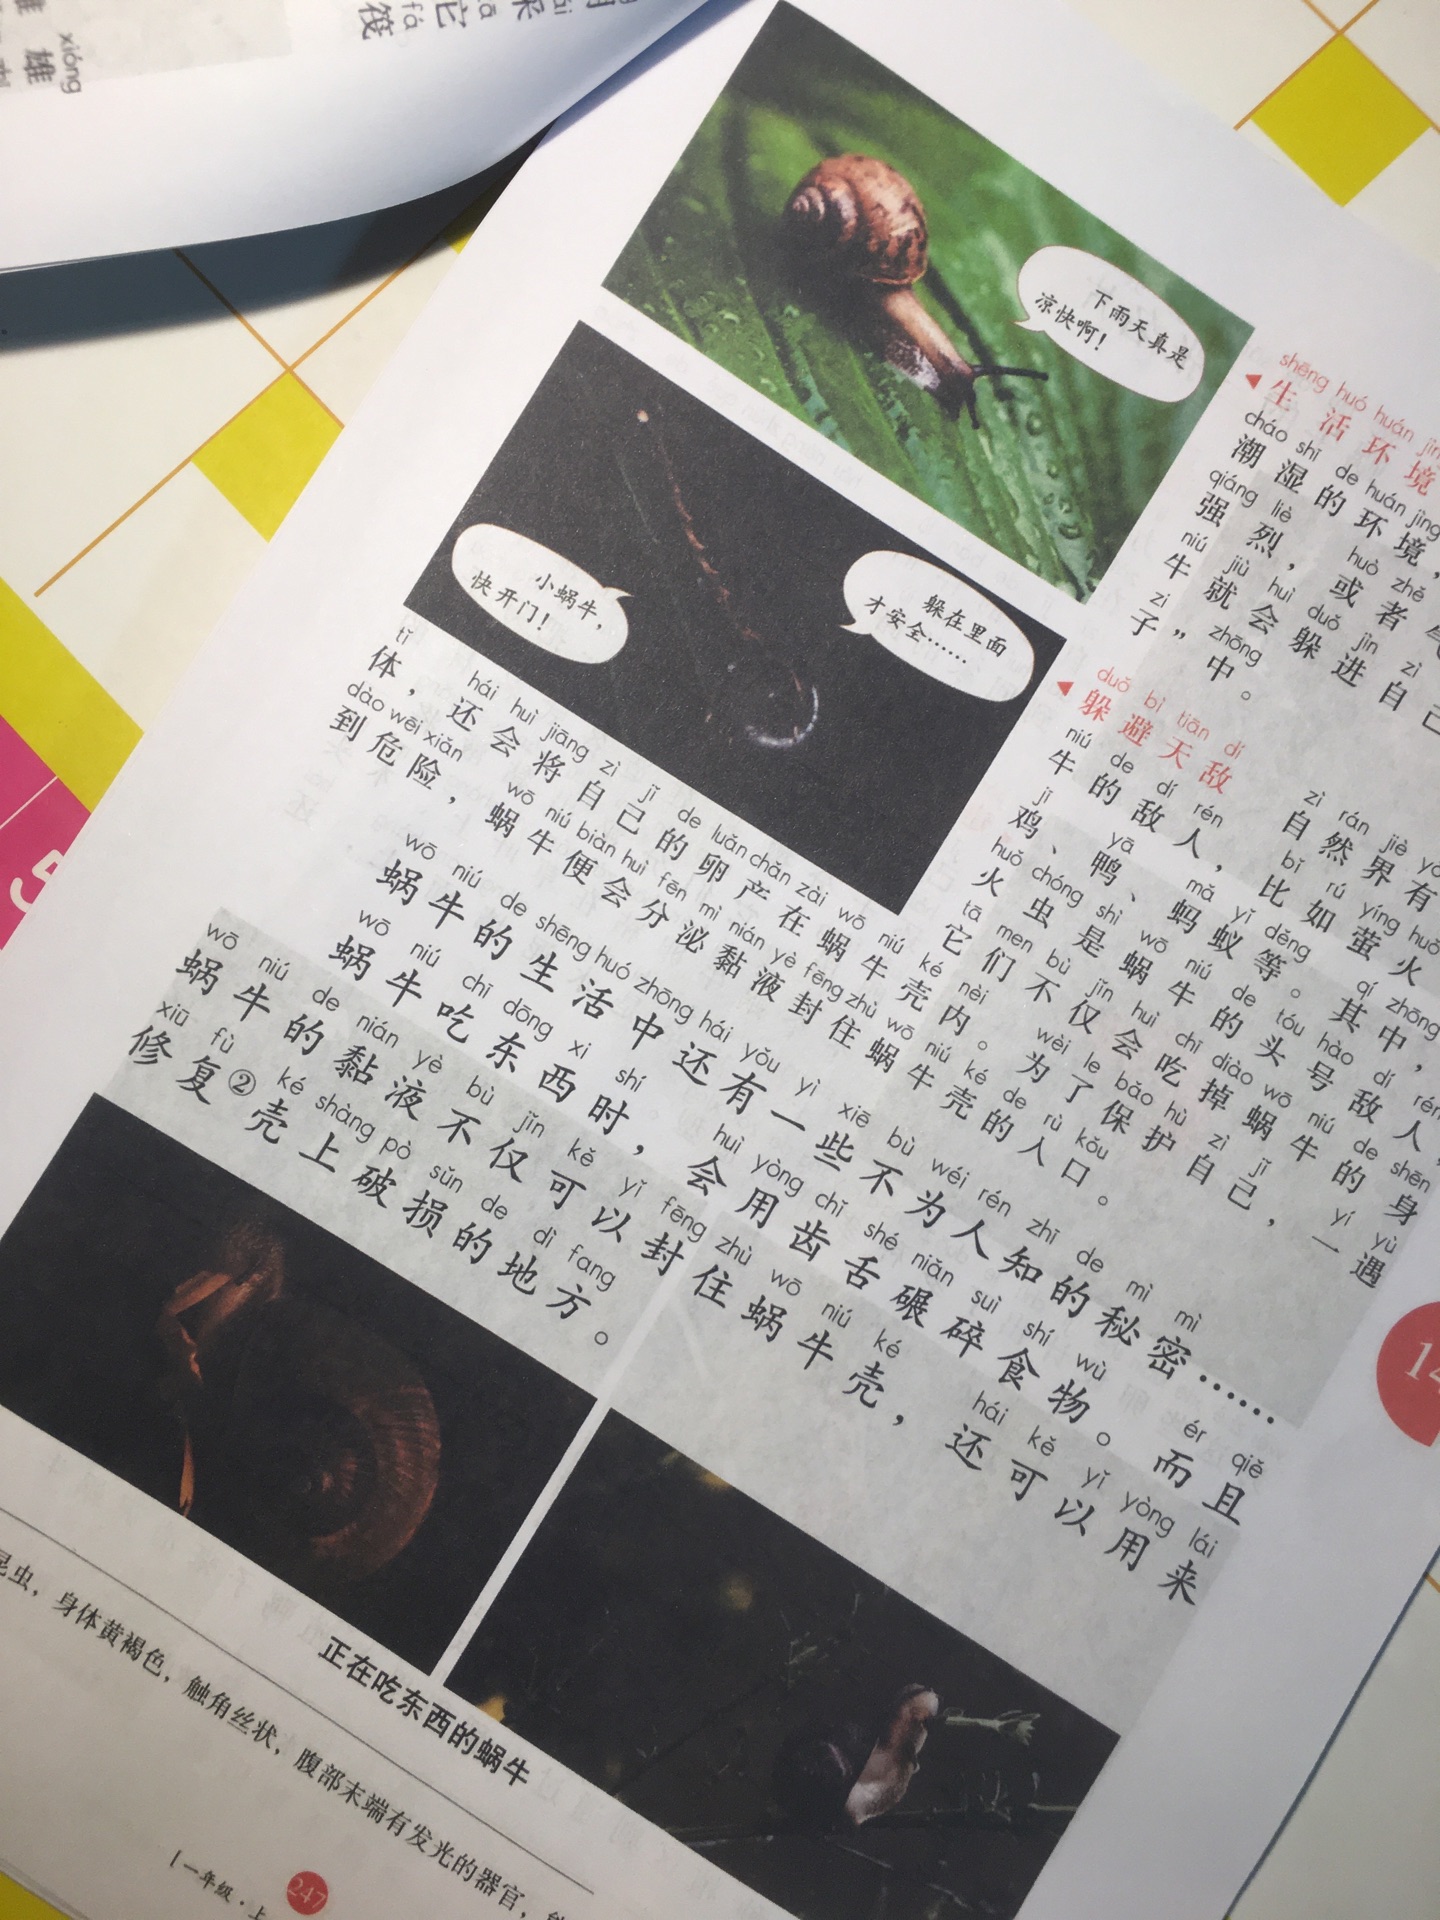 xióng
雄
采
它
fá
筏
下雨天真是
凉快啊！
小蜗牛，
快开门！
躲在里面
才安全……
shēng huó huán
◀生活环境
cháo shī de huán jìng
潮湿的环境，
qiáng liè huò zhě
强烈，或者气
niú jiù huì duǒ jìn zì
牛就会躲进自己
zi zhōng
子”中。
duǒ bì tiān dí zì rán jiè
◀躲避天敌 自然界有
niú de dí rén bǐ rú yíng huǒ
牛的敌人，比如萤火
jī yā mǎ yǐ děng qí zhōng
鸡、鸭、蚂蚁等。其中，
huǒ chóng shì wō niú de tóu hào dí rén
火虫是蜗牛的头号敌人，
tā men bù jǐn huì chī diào wō niú de shēn
它们不仅会吃掉蜗牛的身
tǐ hái huì jiāng zì jǐ de luǎn chǎn zài wō niú ké nèi wèi le bǎo hù zì jǐ yí yù
体，还会将自己的卵产在蜗牛壳内。为了保护自己，一遇
dào wēi xiǎn wō niú biàn huì fēn mì nián yè fēng zhù wō niú ké de rù kǒu
到危险，蜗牛便会分泌黏液封住蜗牛壳的入口。
wō niú de shēng huó zhōng hái yǒu yì xiē bù wéi rén zhī de mì mì
蜗牛的生活中还有一些不为人知的秘密……
wō niú chī dōng xi shí huì yòng chǐ shé niǎn suì shí wù ér qiě
蜗牛吃东西时，会用齿舌碾碎食物。而且
wō niú de nián yè bù jǐn kě yǐ fēng zhù wō niú ké hái kě yǐ yòng lái
蜗牛的黏液不仅可以封住蜗牛壳，还可以用来
xiū fù ké shàng pò sǔn de dì fang
修复②壳上破损的地方。
正在吃东西的蜗牛
昆虫，身体黄褐色，触角丝状，腹部末端有发光的器官，
一年级·上
247
14
5